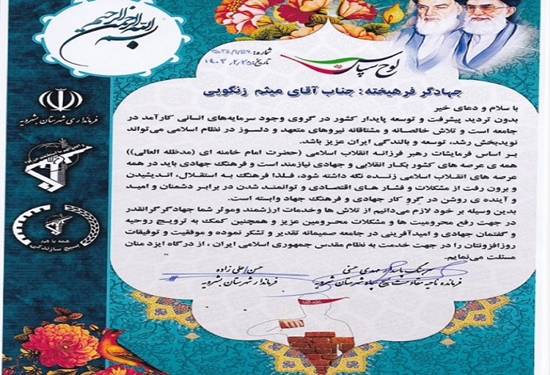 بسم الله الرحمن الرحیم
لوح سپاس
شماره:
تاریخ:
جهادگر فرهیخته: جناب آقای میثم زنگویی
فرمانداری شهرستان بشرویه
با سلام و دعای خیر
بدون تردید پیشرفت و توسعه پایدار کشور در گروی وجود سرمایه‌های انسانی کارآمد در
جامعه است و تلاش خالصانه و مشتاقانه نیروهای متعهد و دلسوز در نظام اسلامی می‌تواند
نویدبخش رشد، توسعه و بالندگی ایران عزیز باشد.
بر اساس فرمایشات رهبر فرزانه انقلاب اسلامی (حضرت امام خامنه ای (مدظله العالی))
همه ی عرصه های کشور یکبار انقلابی و جهادی نیازمند است و فرهنگ جهادی باید در همه
عرصه های انقلاب اسلامی زنده نگه داشته شود، فلذا فرهنگ به استقلال، اندیشیدن
و برون رفت از مشکلات و فشار های اقتصادی و توانمند شدن در برابر دشمنان و امید
و آینده ی روشن در گرو کار جهادی و فرهنگ جهاد وابسته است.
بدین وسیله بر خود لازم می‌دانیم از تلاش ها و خدمات ارزشمند وموثر شما جهادگر گرانقدر
در جهت رفع محرومیت ها و مشکلات محرومین عزیز و همچنین کمک به ترویج روحیه
و گفتمان جهادی و امیدآفرینی در جامعه صمیمانه تقدیر و تشکر نموده و موفقیت و توفیقات
روزافزونتان را در جهت خدمت به نظام مقدس جمهوری اسلامی ایران، از درگاه ایزد منان
مسئلت می‌نماییم.
همه با هم
بسیج سازندگی
سرهنگ پاسدار مهدی حسنی
حسن علی زاده
فرمانده ناحیه مقاومت بسیج سپاه شهرستان بشرویه
فرماندار شهرستان بشرویه